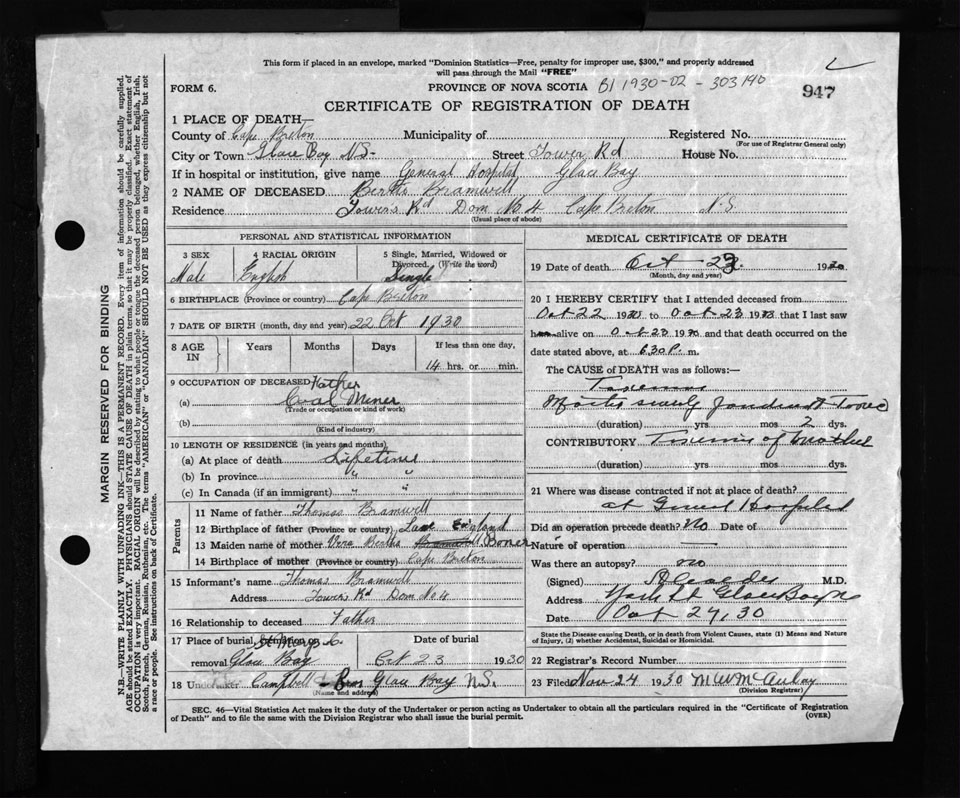 This form if placed in an envelope, marked "Dominion Statistics—Free, penalty for improper use, $300," and properly addressed
will pass through the Mail "FREE"
FORM 6. PROVINCE OF NOVA SCOTIA B1 1930-02-303190 947
CERTIFICATE OF REGISTRATION OF DEATH
1 PLACE OF DEATH—
County of Cape Breton Municipality of Registered No.
(For use of Registrar General only)
City or Town Glace Bay N.S. Street Tower Rd House No.
If in hospital or institution, give name General Hospital, Glace Bay
2 NAME OF DECEASED Bertha Bramwell
Residence Towers Rd Dom No 4 Cape Breton N.S
(Usual place of abode)
PERSONAL AND STATISTICAL INFORMATION
3 SEX 4 RACIAL ORIGIN 5 Single, Married, Widowed or
Divorced. (Write the word)
Male English Single
6 BIRTHPLACE (Province or country) Cape Breton
7 DATE OF BIRTH (month, day and year) 22 Oct 1930
8 AGE IN Years Months Days If less than one day,
14 hrs. or min.
9 OCCUPATION OF DECEASED Father
(a) Coal Miner
(Trade or occupation or kind of work)
(b)
(Kind of industry)
10 LENGTH OF RESIDENCE (in years and months)
(a) At place of death Lifetime
(b) In province " "
(c) In Canada (if an immigrant) " "
Parents
11 Name of father Thomas Bramwell
12 Birthplace of father (Province or country) England
13 Maiden name of mother Vera Bertha Bramwell Boner
14 Birthplace of mother (Province or country) Cape Breton
15 Informant's name Thomas Bramwell
Address Towers Rd Dom No 4
16 Relationship to deceased Father
17 Place of burial, cremation or St Marys
removal Glace Bay
Date of burial
Oct 23 1930
18 Undertaker Campbell Bros Glace Bay N.S.
(Name and address)
MEDICAL CERTIFICATE OF DEATH
19 Date of death Oct 23 1930
(Month, day and year)
20 I HEREBY CERTIFY that I attended deceased from
Oct 22 1930 to Oct 23 1930 that I last saw
h alive on Oct 23 1930 and that death occurred on the
date stated above, at 6.30 P. m.
The CAUSE of DEATH was as follows:—
(duration) yrs mos 2 dys.
CONTRIBUTORY of mother
(duration) yrs mos dys.
21 Where was disease contracted if not at place of death?
at General Hospital
Did an operation precede death? No Date of
Nature of operation
Was there an autopsy? no
(Signed) M.D.
Address York St Glace Bay
Date Oct 27, 30
State the Disease causing Death, or in death from Violent Causes, state (1) Means and Nature
of Injury, (2) whether Accidental, Suicidal or Homicidal.
22 Registrar's Record Number
23 Filed Nov 24 1930 M W McAulay
(Division Registrar)
SEC. 46—Vital Statistics Act makes it the duty of the Undertaker or person acting as Undertaker to obtain all the particulars required in the "Certificate of Registration
of Death" and to file the same with the Division Registrar who shall issue the burial permit. (OVER)
MARGIN RESERVED FOR BINDING
N.B.—WRITE PLAINLY WITH UNFADING INK—THIS IS A PERMANENT RECORD. Every item of information should be carefully supplied.
AGE should be stated EXACTLY. PHYSICIANS should STATE CAUSE OF DEATH in plain terms, so that it may be properly classified. Exact statement of
OCCUPATION is very important. RACIAL ORIGIN will be described by stating to what people or tongue the deceased person belonged, whether English, Irish,
Scotch, French, German, Russian, Ruthenian, etc. The terms "AMERICAN" or "CANADIAN" SHOULD NOT BE USED as they express citizenship but not
a race or people. See instructions on back of Certificate.